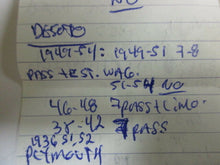 NO
DESOTO
1949-54: 1949-51 7-8
PASS + EST. WAG.
51-54 NO
46-48 7 PASS + LIMO.
38-42 7 PASS
1936 51, 52
PLYMOUTH